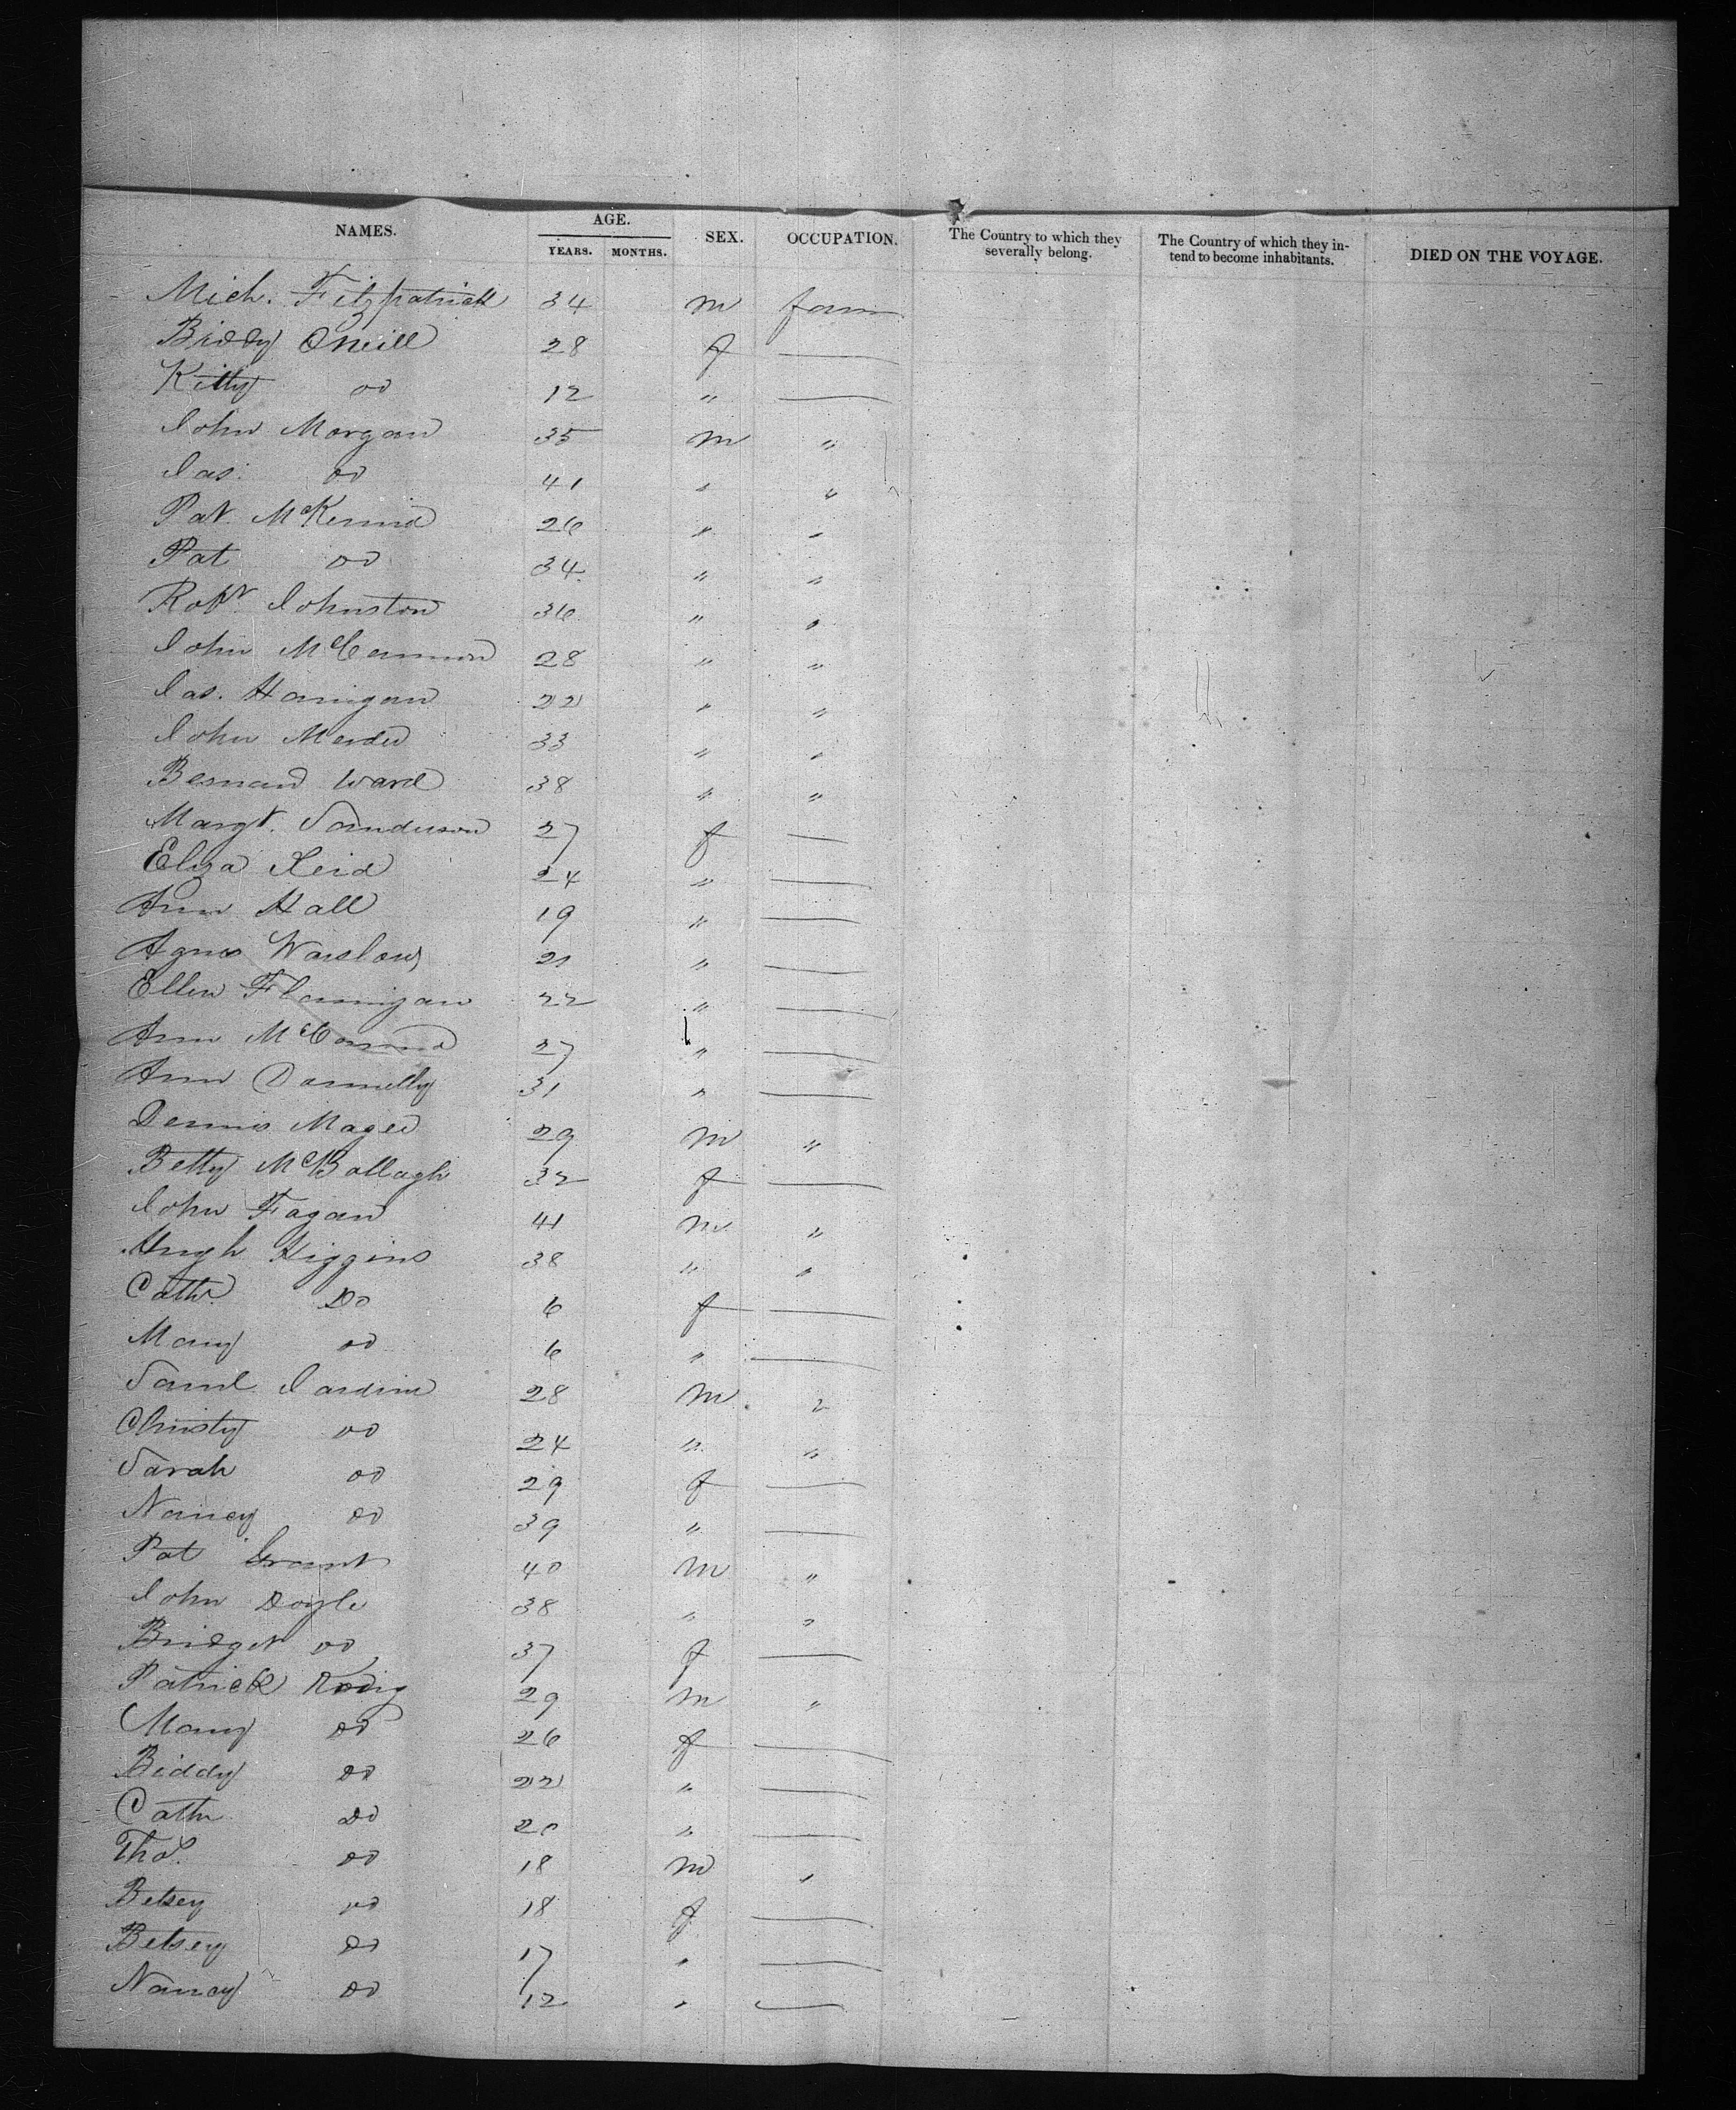 NAMES. AGE. SEX. OCCUPATION. The Country to which they severally belong. The Country of which they intend to become inhabitants. DIED ON THE VOYAGE.
YEARS. MONTHS.
Mich. Fitzpatrick 34 m farm
Biddy ONeill 28 f —
Kitty do 12 " —
John Morgan 35 m "
Jas. do 41 " "
Pat. McKenna 26 " "
Pat do 34 " "
Robt. Johnston 36 " "
John McCannon 28 " "
Jas. Hanigan 22 " "
John Meader 33 " "
Bernard Ward 38 " "
Margt. Sanderson 27 f —
Eliza Reid 24 " —
Ann Hall 19 " —
Agnes Warslow 21 " —
Ellen Flannigan 22 " —
Ann 27 " —
Ann Donnelly 31 " —
Dennis Magee 29 m "
Betty McCollagh 32 f —
John Fagan 41 m "
Hugh Higgins 38 " "
Cathe. Do 6 f —
Mary do 6 " —
Saml. Jardine 28 m "
Christy do 24 " "
Sarah do 29 f —
Nancy do 39 " —
Pat Grant 40 m "
John Doyle 38 " "
Bridget do 37 f —
Patrick Rodig 29 m "
Mary do 26 f —
Biddy do 22 " —
Cath Do 20 " —
Thos. do 18 m "
Betsey do 18 f —
Betsey do 17 " —
Nancy do 12 " —